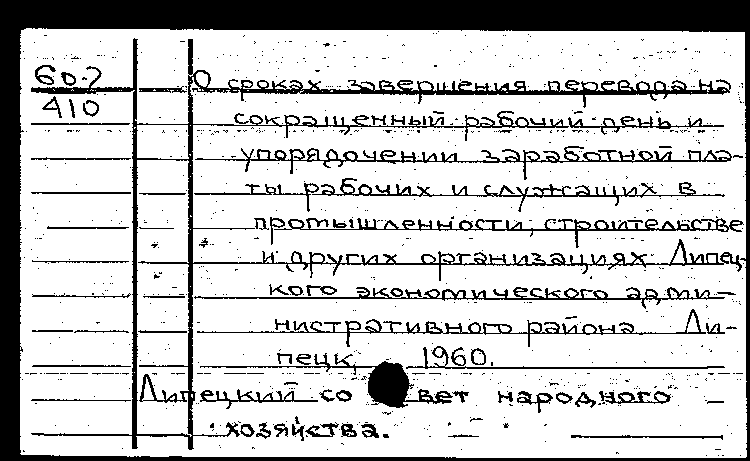 60-7
410
О сроках завершения перевода на
сокращенный рабочий день и
упорядочении заработной пла-
ты рабочих и служащих в
промышленности, строительстве
и других организациях Липец-
кого экономического адми-
нистративного района. Ли-
пецк, 1960.
Липецкий совет народного
хозяйства.